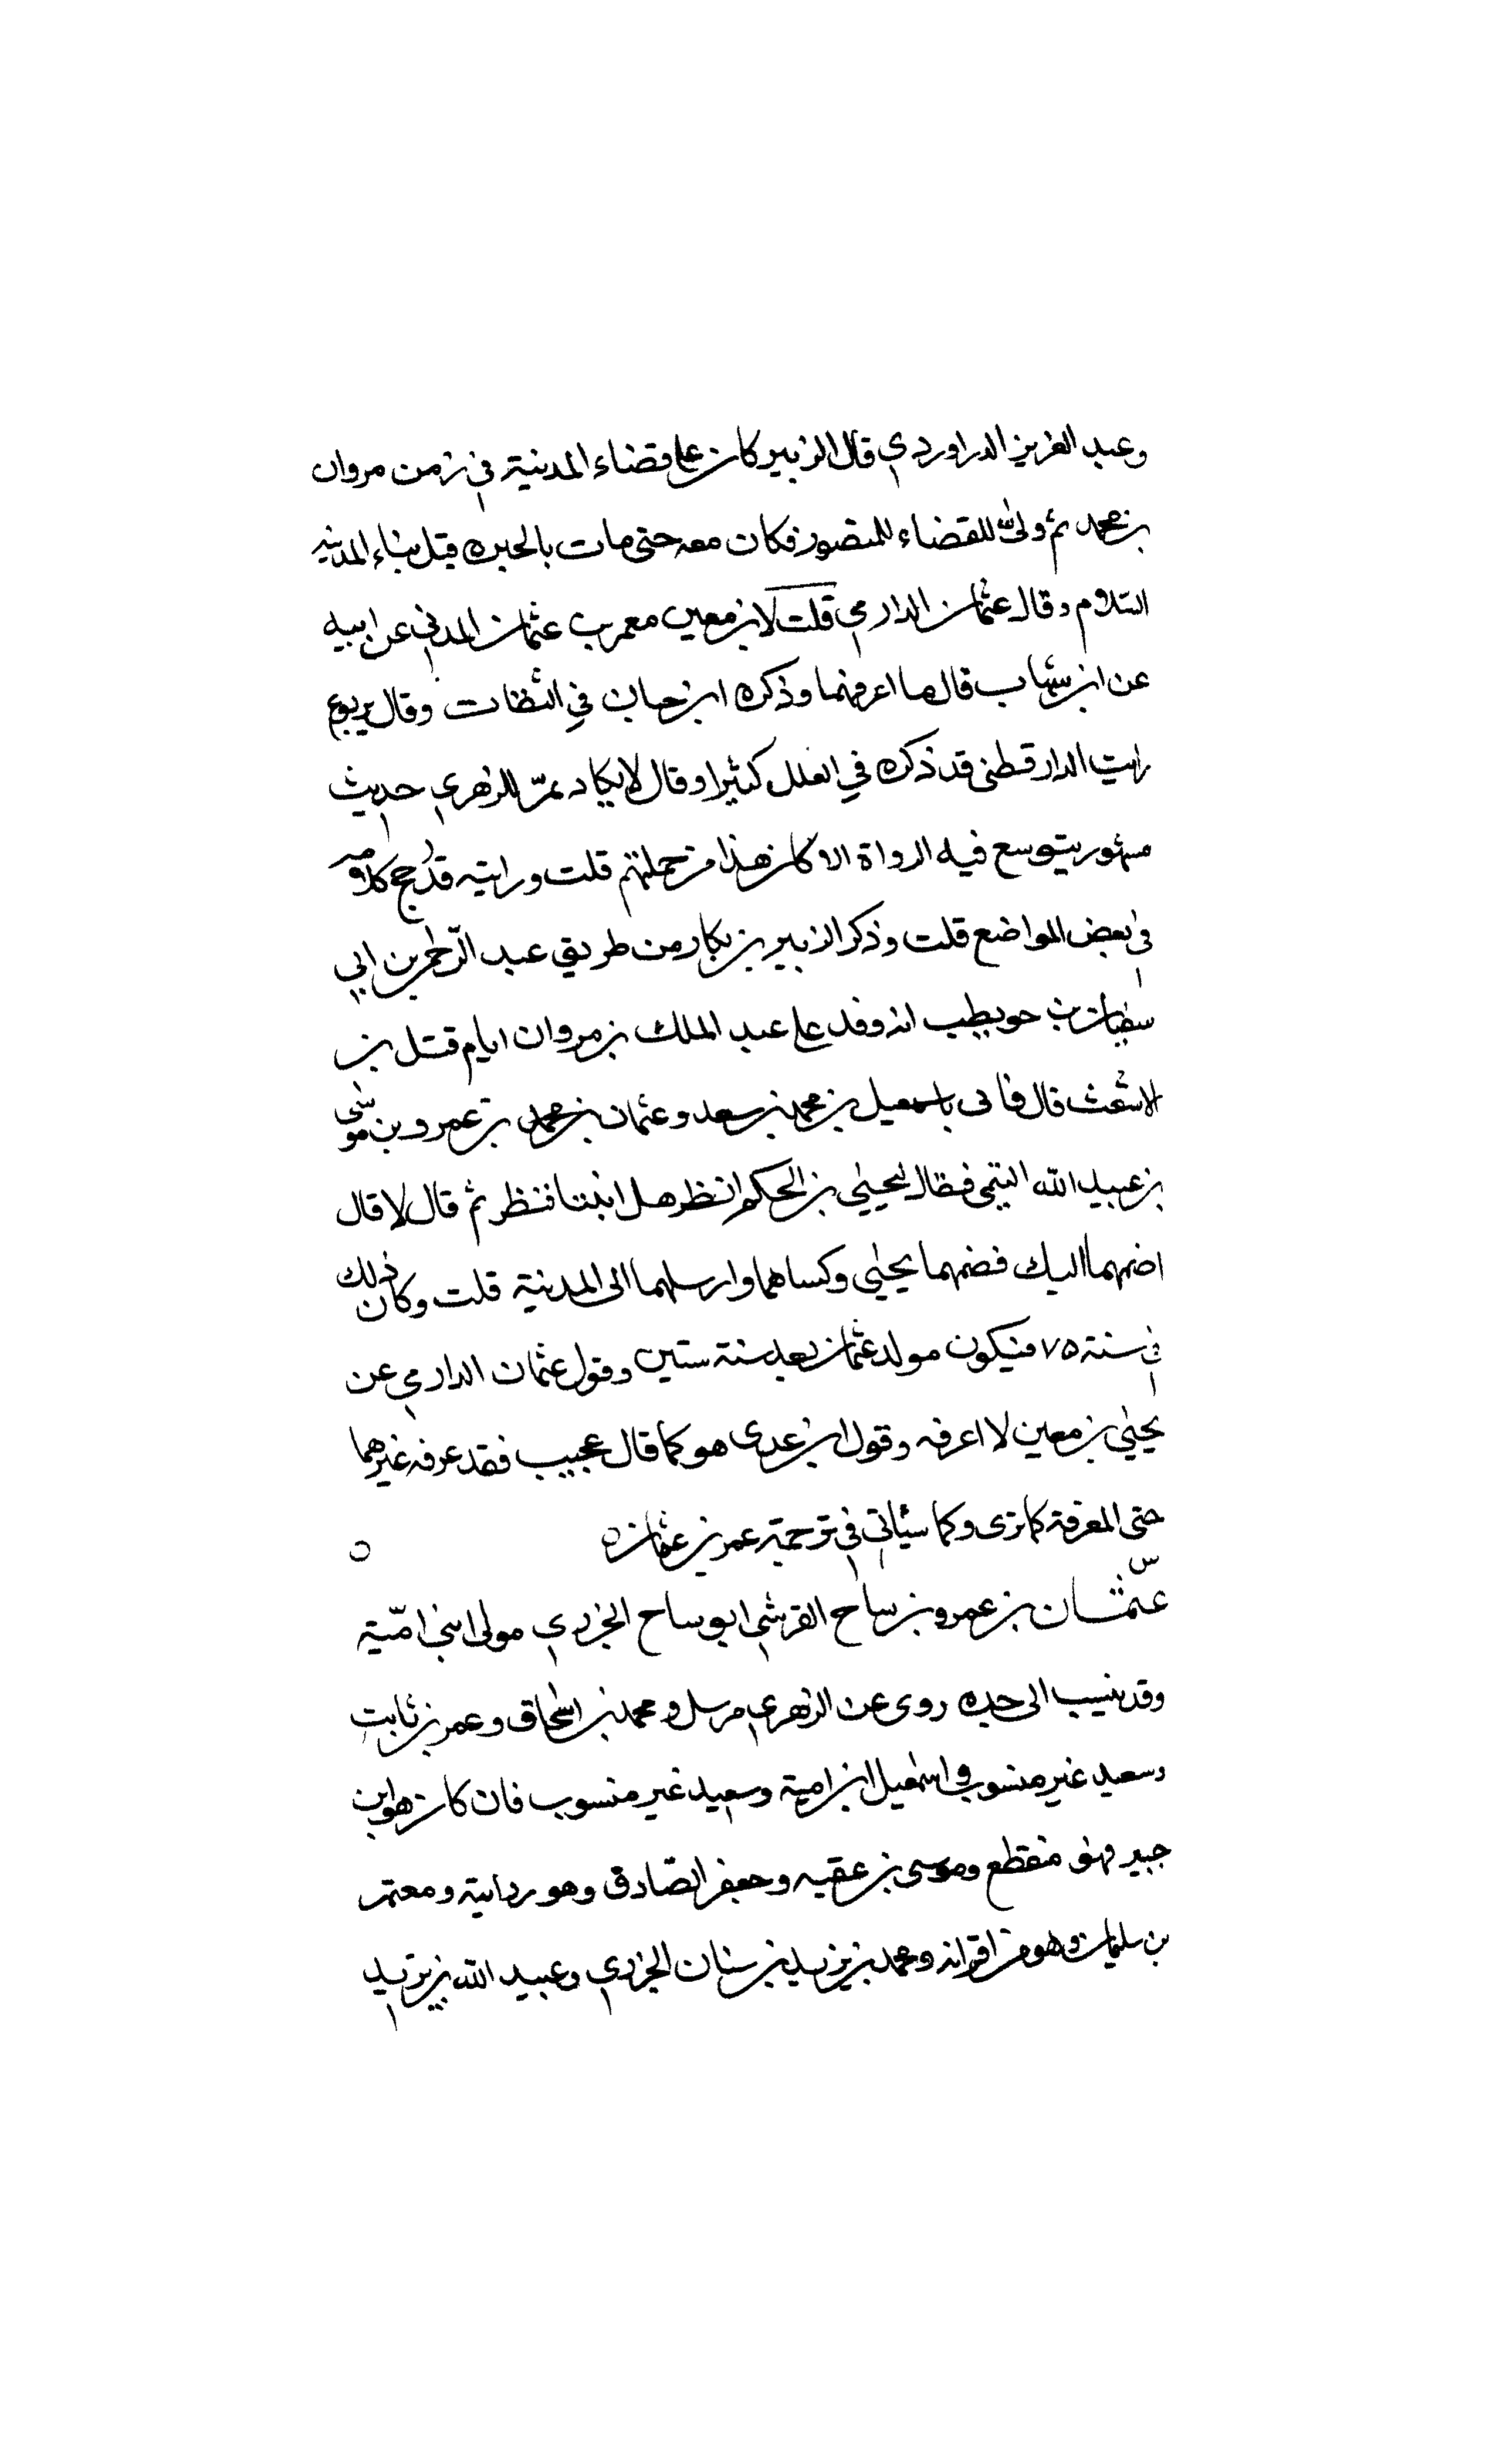 وعبد العزيز الدراوردي قال الزبير كان على قضاء المدينة في زمن مروان
بن محمد ثم ولي القضاء للمنصور فكان معه حتى مات بالحيرة قبل بناء مدينة
السلام وقال عثمان الدارمي قلت لابن معين معمر بن عثمان المدني عن ابيه
عن ابن شهاب قال ما اعرفهما وذكره ابن حبان في الثقات وقال يربوع
رايت الدارقطني قد ذكره في العلل كثيرا وقال لا يكاد يمر للزهري حديث
مشهور يتوسع فيه الرواة الا كان هذا من جملتهم قلت ورايته قد رجح كلامه
في بعض المواضع قلت وذكر الزبير بن بكار من طريق عبد الرحمن بن ابي
سفيان بن حويطب انه وفد على عبد الملك بن مروان ايام قتل بن
الاشعث قال فاتى باسمعيل بن محمد بن سعد وعثمان بن محمد بن عمرو بن موسى
بن عبيد الله التيمي فقال ليحيى بن الحكم انظر هل انبتا فنظر ثم قال لا قال
اضمهما اليك فضمهما يحيى وكساهما وارسلهما الى المدينة قلت وكان ذلك
في سنة ٧٥ فيكون مولد عثمان بعد سنة ستين وقول عثمان الدارمي عن
يحيى بن معين لا اعرفه وقول ابن عدي هو كما قال عجيب فقد عرفه غيرهما
حتى المعرفة كما ترى وكما سياتي في ترجمة عمر بن عثمان ه
س
عثمان بن عمرو بن ساج القرشي ابو ساج الجزري مولى بني امية
وقد ينسب الى جده روى عن الزهري مرسل ومحمد بن اسحاق وعمر بن ثابت
وسعيد غير منسوب واسمعيل ابن امية وسعيد غير منسوب فان كان هو ابن
جبير فهو منقطع وموسى بن عقبه وجعفر الصادق وهو ردابية ومعتمر
بن سليمان وهو من اقرانه ومحمد بن يزيد بن سنان الجزري وعبيد الله بن يزيد